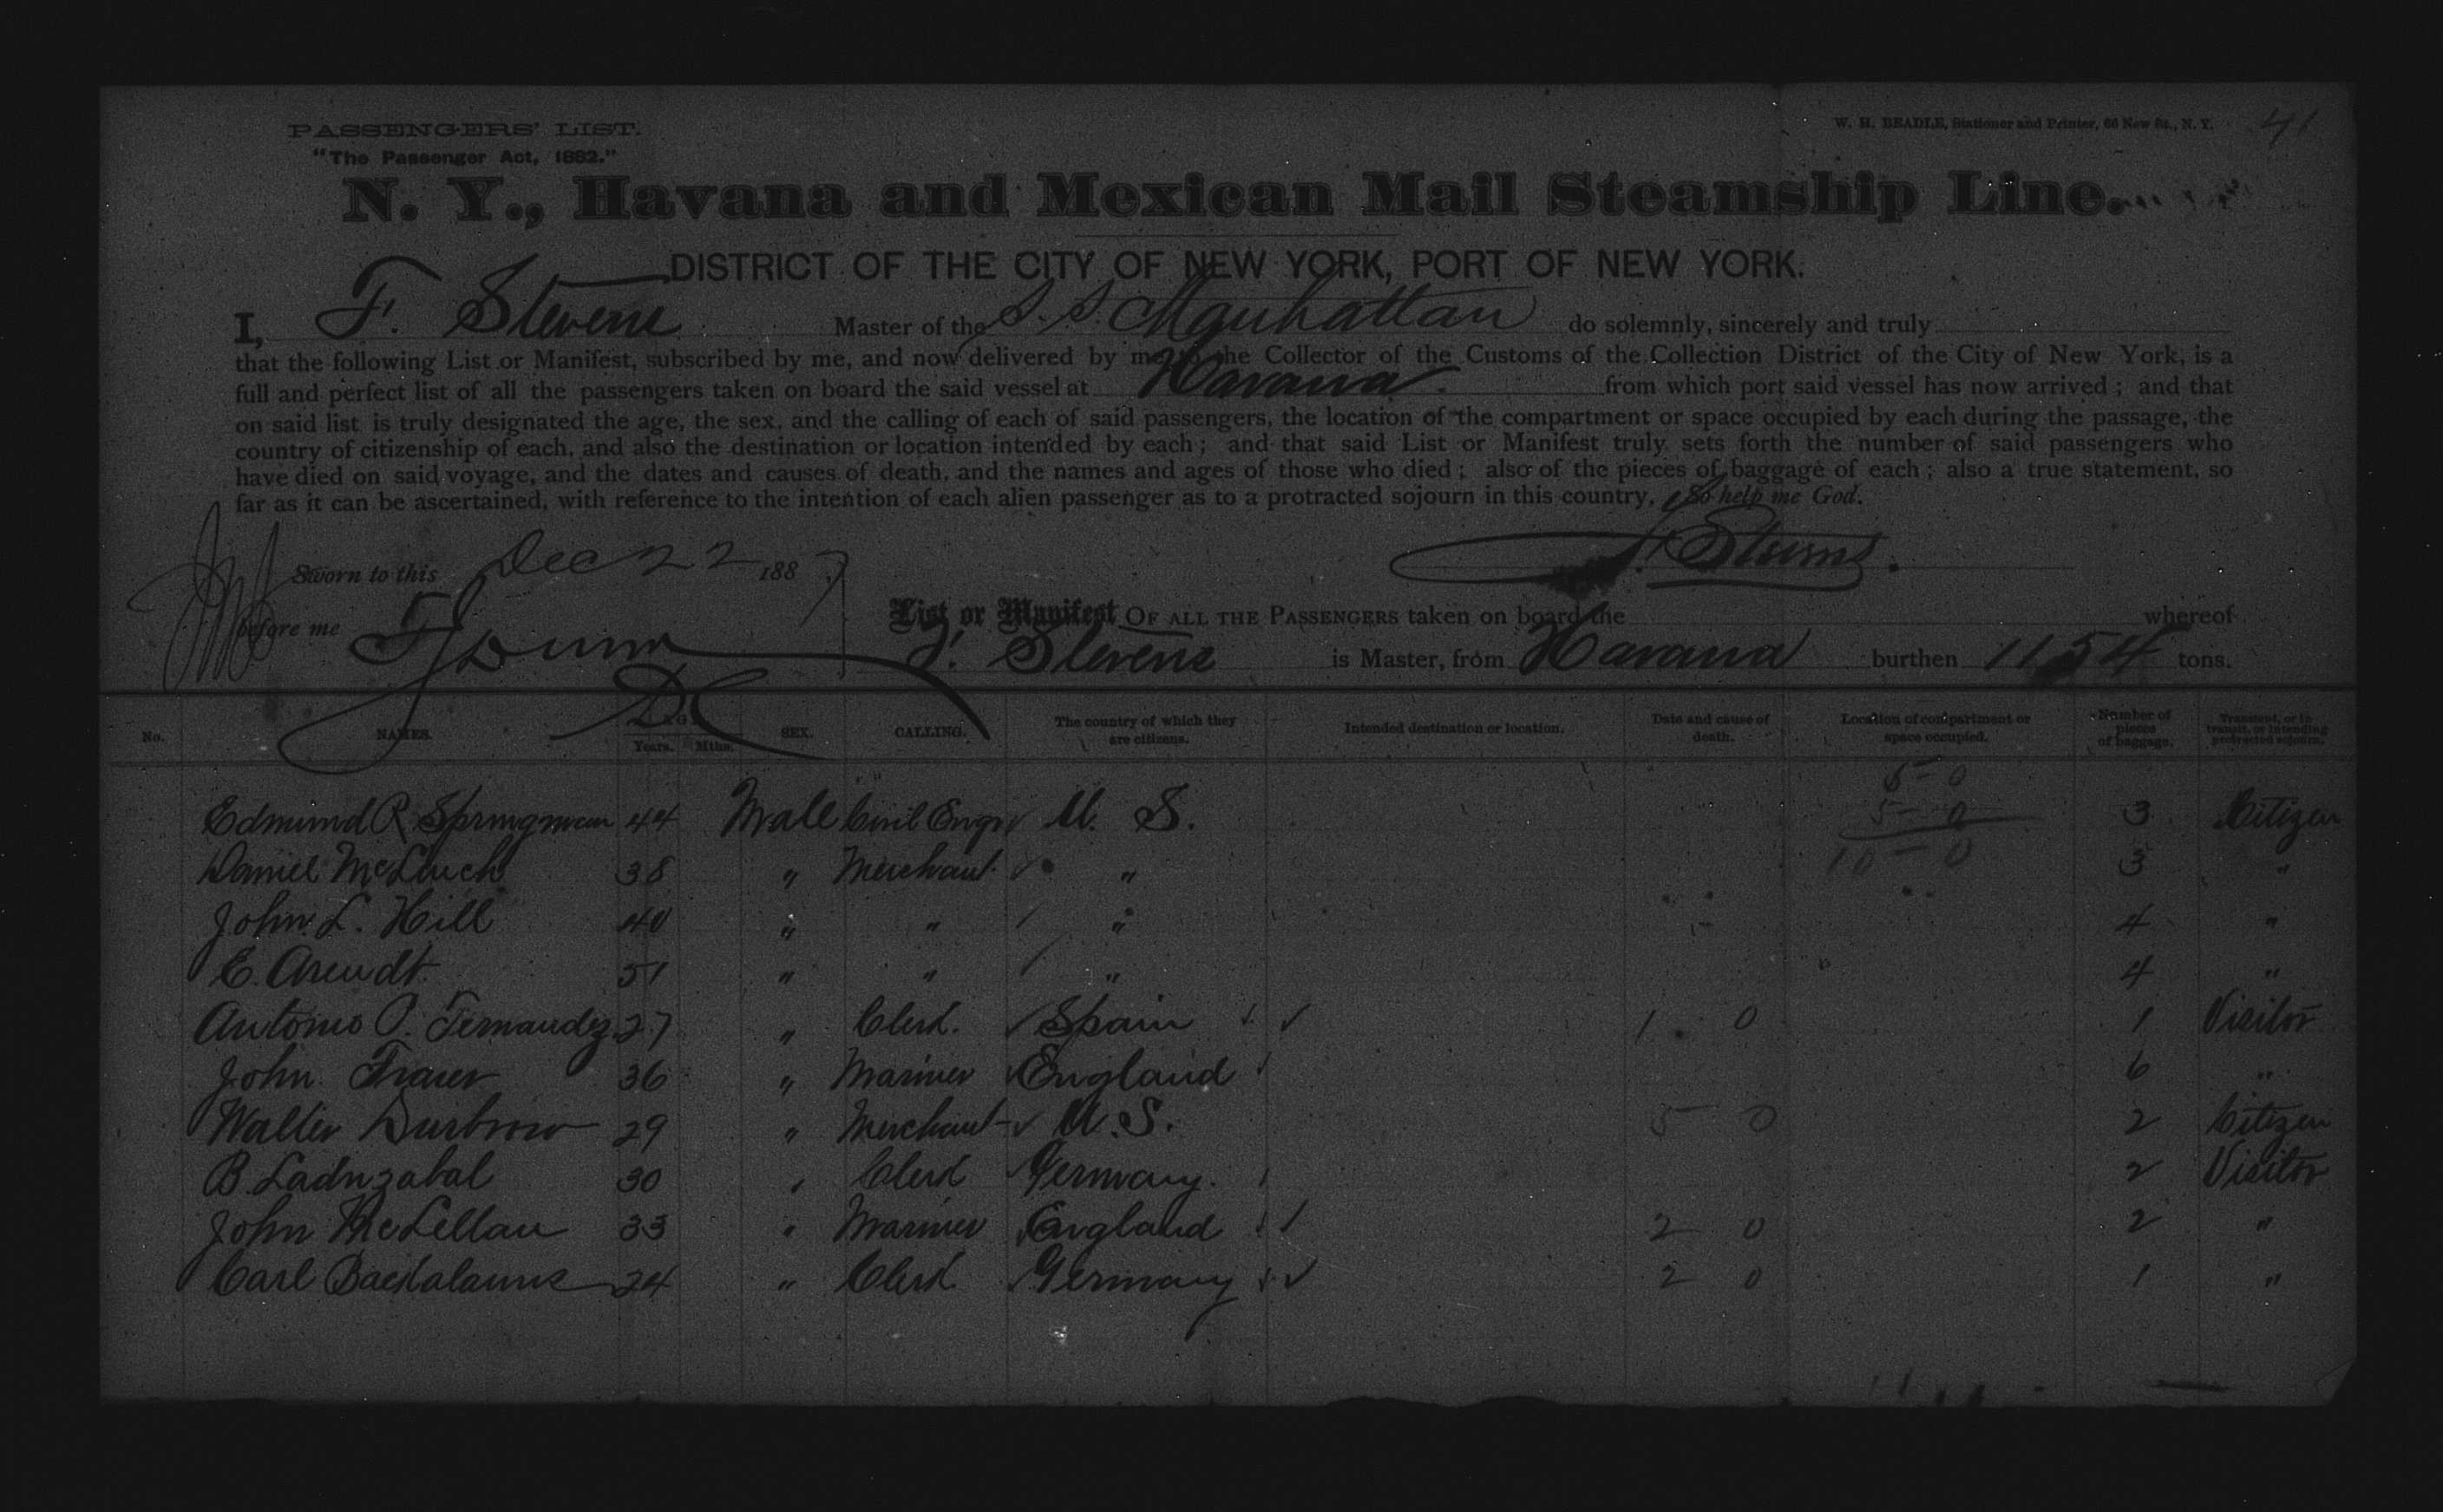 PASSENGERS' LIST.
"The Passenger Act, 1882."
W. H. BEADLE, Stationer and Printer, 66 New St., N. Y.
41
N. Y., Havana and Mexican Mail Steamship Line.
DISTRICT OF THE CITY OF NEW YORK, PORT OF NEW YORK.
I, F. Stevens Master of the S. S. Manhattan do solemnly, sincerely and truly
that the following List or Manifest, subscribed by me, and now delivered by me to the Collector of the Customs of the Collection District of the City of New York, is a
full and perfect list of all the passengers taken on board the said vessel at Havana from which port said vessel has now arrived; and that
on said list is truly designated the age, the sex, and the calling of each of said passengers, the location of the compartment or space occupied by each during the passage, the
country of citizenship of each, and also the destination or location intended by each; and that said List or Manifest truly sets forth the number of said passengers who
have died on said voyage, and the dates and causes of death, and the names and ages of those who died; also of the pieces of baggage of each; also a true statement, so
far as it can be ascertained, with reference to the intention of each alien passenger as to a protracted sojourn in this country. So help me God.
F. Stevens
Sworn to this Dec 22 1887
before me
List or Manifest OF ALL THE PASSENGERS taken on board the whereof
F. Stevens is Master, from Havana burthen 1154 tons.
No. NAMES. AGE. Years. Mths. SEX. CALLING. The country of which they are citizens. Intended destination or location. Date and cause of death. Location of compartment or space occupied. Number of pieces of baggage. Transient, or in transit, or intending protracted sojourn.
5-0
Edmund R Springman 44 Male Civil Engr U. S. 5-0 3 Citizen
Daniel 38 " Merchant " 10-0 3 "
John L. Hill 40 " " " 4 "
E. Arendt 51 " " " 4 "
Antonio P. Fernandez 27 " Clerk. Spain 1 0 1 Visitor
John Fraser 36 " Mariner England 6 "
Walter Durbrow 29 " Merchant U. S. 5 0 2 Citizen
B. Laduzabal 30 " Clerk Germany. 2 Visitor
John McLellan 33 " Mariner England 2 0 2 "
Carl 24 " Clerk Germany 2 0 1 "